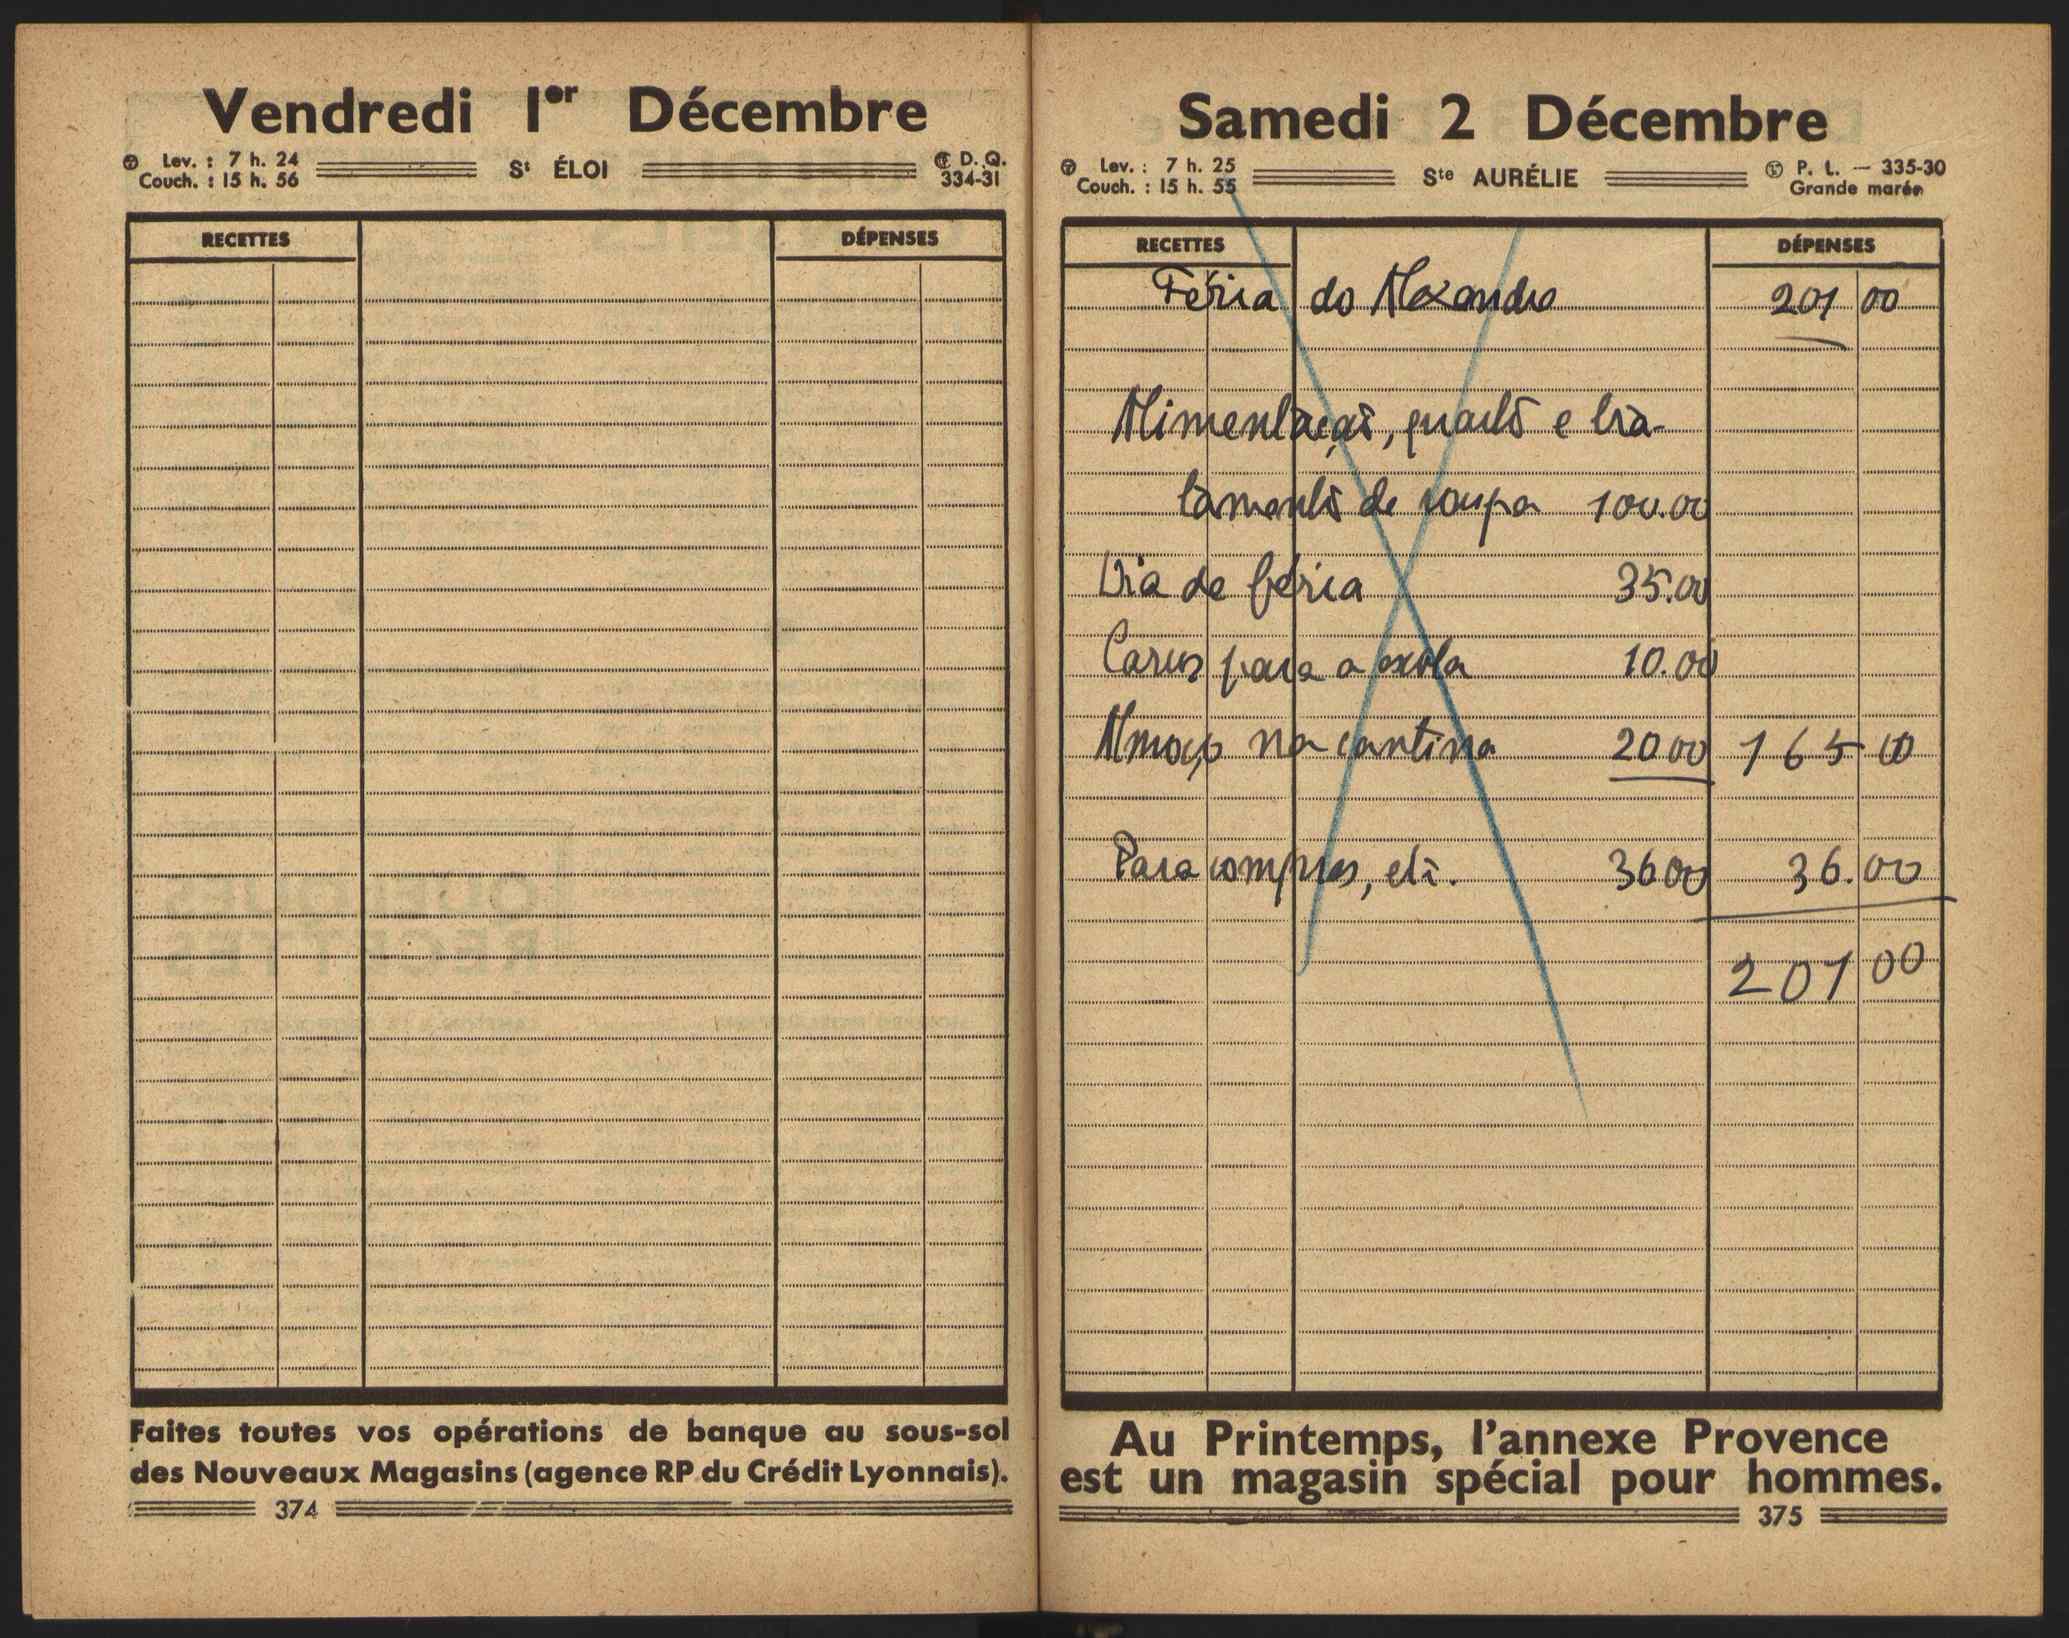 Vendredi 1er Décembre
Lev. : 7 h. 24
Couch. : 15 h. 56
St ÉLOI
D. Q.
334-31
RECETTES
DÉPENSES
Faites toutes vos opérations de banque au sous-sol
des Nouveaux Magasins (agence RP du Crédit Lyonnais).
374
Samedi 2 Décembre
Lev. : 7 h. 25
Couch. : 15 h. 55
Ste AURÉLIE
P. L. — 335-30
Grande marée
RECETTES
DÉPENSES
Féria do Alexandre 201 00
Alimentação, quarto e tra-
tamento de roupa 100.00
Dia de féria 35.00
Carros para a escola 10.00
Almoço na cantina 20 00 165 00
Para compras, etc. 36 00 36.00
201 00
Au Printemps, l'annexe Provence
est un magasin spécial pour hommes.
375